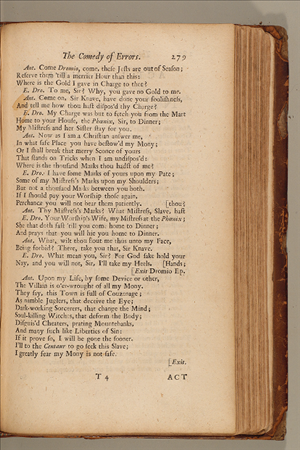 The Comedy of Errors. 279
Ant. Come Dromio, come, these Jests are out of Season;
Reserve them 'till a merrier Hour than this:
Where is the Gold I gave in Charge to thee?
E. Dro. To me, Sir? Why, you gave no Gold to me.
Ant. Come on, Sir Knave, have done your foolishness,
And tell me how thou hast dispos'd thy Charge?
E. Dro. My Charge was but to fetch you from the Mart
Home to your House, the Phœnix, Sir, to Dinner;
My Mistress and her Sister stay for you.
Ant. Now as I am a Christian answer me,
In what safe Place you have bestow'd my Mony;
Or I shall break that merry Sconce of yours
That stands on Tricks when I am undispos'd:
Where is the thousand Marks thou hadst of me?
E. Dro. I have some Marks of yours upon my Pate;
Some of my Mistress's Marks upon my Shoulders;
But not a thousand Marks between you both.
If I should pay your Worship those again,
Perchance you will not bear them patiently. [thou?
Ant. Thy Mistress's Marks? What Mistress, Slave, hast
E. Dro. Your Worship's Wife, my Mistress at the Phœnix;
She that doth fast 'till you come home to Dinner;
And prays that you will hie you home to Dinner.
Ant. What, wilt thou flout me thus unto my Face,
Being forbid? There, take you that, Sir Knave.
E. Dro. What mean you, Sir? For God sake hold your
Nay, and you will not, Sir, I'll take my Heels. [Hands;
[Exit Dromio Ep.
Ant. Upon my Life, by some Device or other,
The Villain is o'er-wrought of all my Mony.
They say, this Town is full of Couzenage;
As nimble Juglers, that deceive the Eye;
Dark-working Sorcerers, that change the Mind;
Soul-killing Witches, that deform the Body;
Disguis'd Cheaters, prating Mountebanks,
And many such like Liberties of Sin:
If it prove so, I will be gone the sooner.
I'll to the Centaur to go seek this Slave;
I greatly fear my Mony is not safe.
[Exit.
T 4 ACT